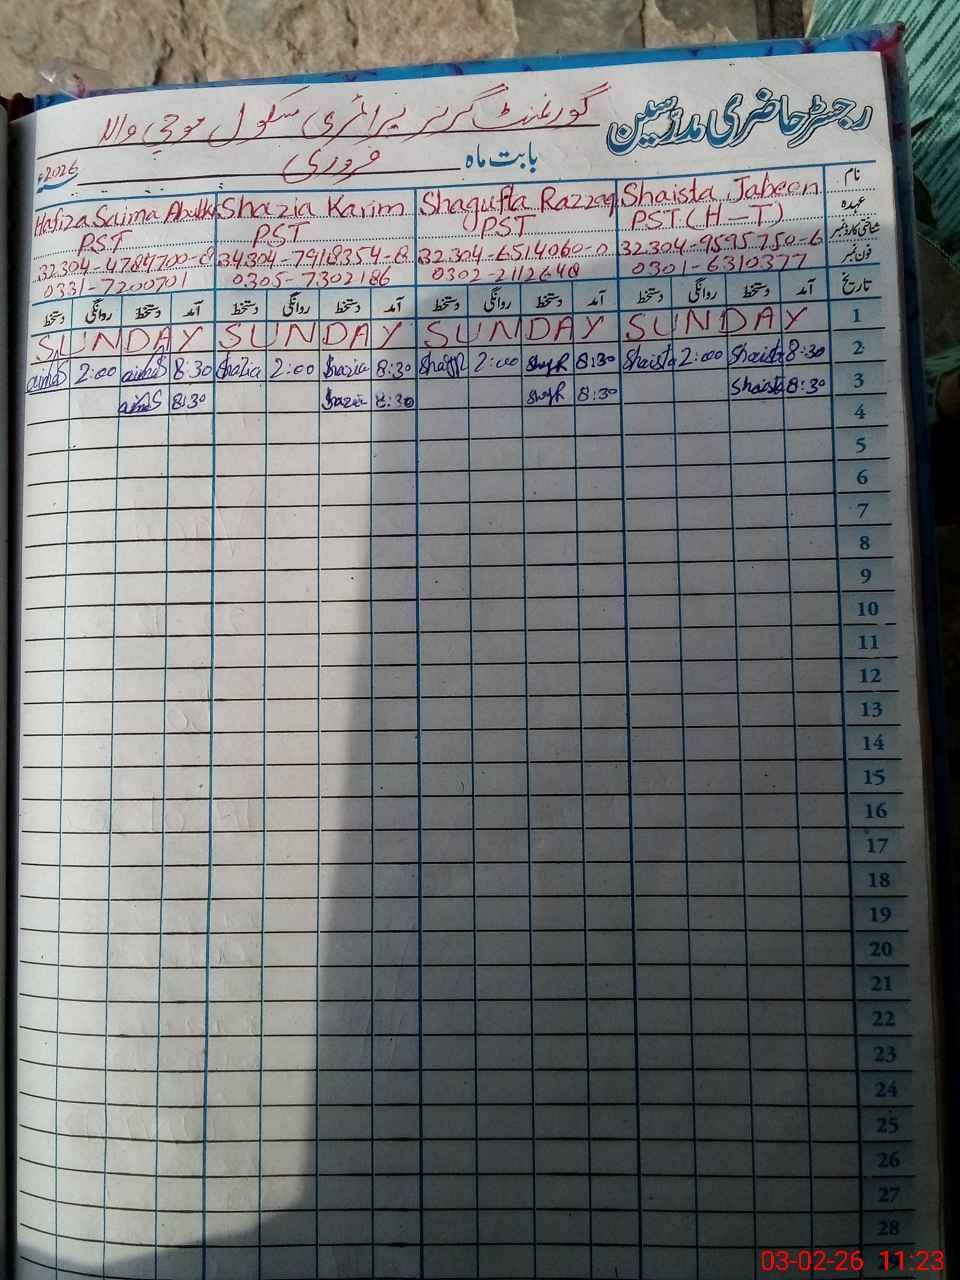 رجسٹر حاضری مدرسین
گورنمنٹ گرلز پرائمری سکول موچی والا
بابت ماہ فروری 2026ء
نام Shaista Jabeen Shagufta Razzaq Shazia Karim Hafiza Saima
عہدہ PST (H-T) PST PST PST
شناختی کارڈ نمبر 32304-9595750-6 32304-6514060-0 34304-7918354-8 32304-4784700-8
فون نمبر 0301-6310377 0302-2112648 0305-7302186 0331-7200701
تاریخ آمد دستخط روانگی دستخط آمد دستخط روانگی دستخط آمد دستخط روانگی دستخط آمد دستخط روانگی دستخط
1 SUNDAY SUNDAY SUNDAY SUNDAY
2 8:30 Shaista 2:00 Shaista 8:30 2:00 8:30 Shazia 2:00 Shazia 8:30 2:00
3 8:30 Shaista 8:30 8:30 Shazia 8:30
4
5
6
7
8
9
10
11
12
13
14
15
16
17
18
19
20
21
22
23
24
25
26
27
28
03-02-26 11:23